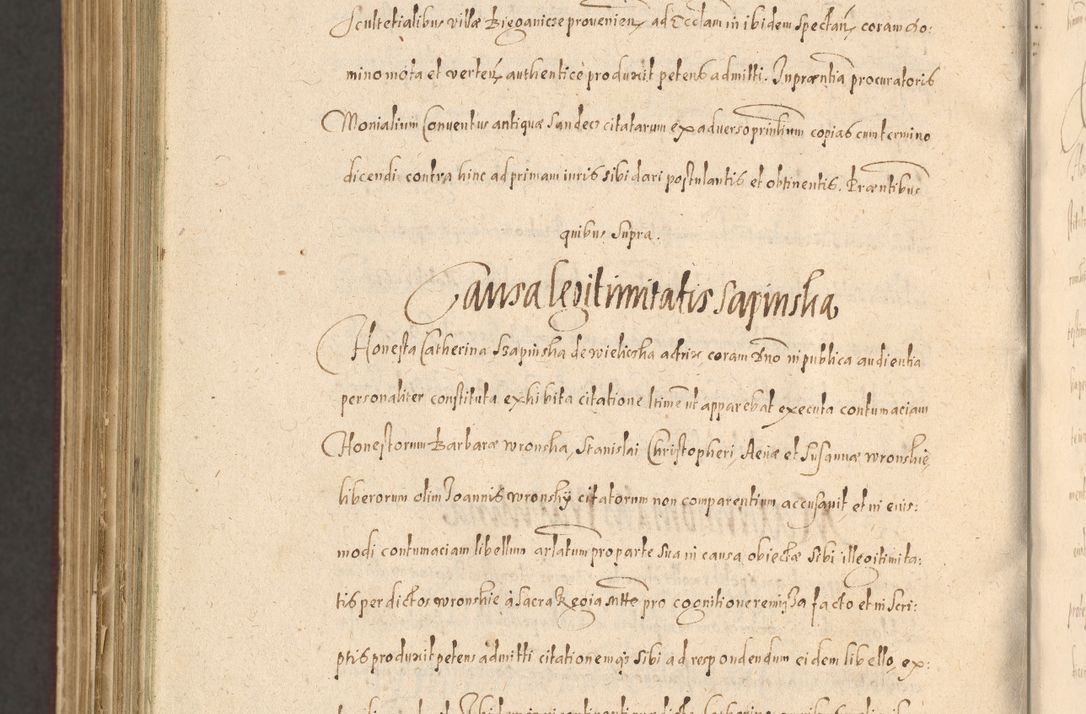 Scultetialibus villæ Biegonicze provenien, ad Eccłam in ibidem spectan, coram do:
mino mota et verten, authenticè produxit petens admitti. In præntia procuratoris
Monialium Conventus antiquæ Sandec citatarum ex adverso printium copias cum termino
dicendi contra hinc ad primam iuris sibi dari postulantis et obtinentis. Præntibus
quibus supra.
Causa legitimitatis Sapinska
Honesta Catherina Szapinska de Wieliczka actrix coram Dno in publica audientia
personaliter constituta exhibita citatione ltime ut apparebat executa contumaciam
Honestorum Barbaræ Wronska, Stanislai Christopheri, et Susannæ Wronskie,
liberorum olim Joannis Wronsky citatorum non comparentium accusavit et in eius:
modi contumaciam libellum arlatum pro parte sua in causa obiectæ sibi illegitimita:
tis per dictos Wronskie à Sacra Regia Mtte pro cognitione remissa facto et in scri:
ptis produxit petens admitti citationemqs sibi ad respondendum eidem libello, ex: